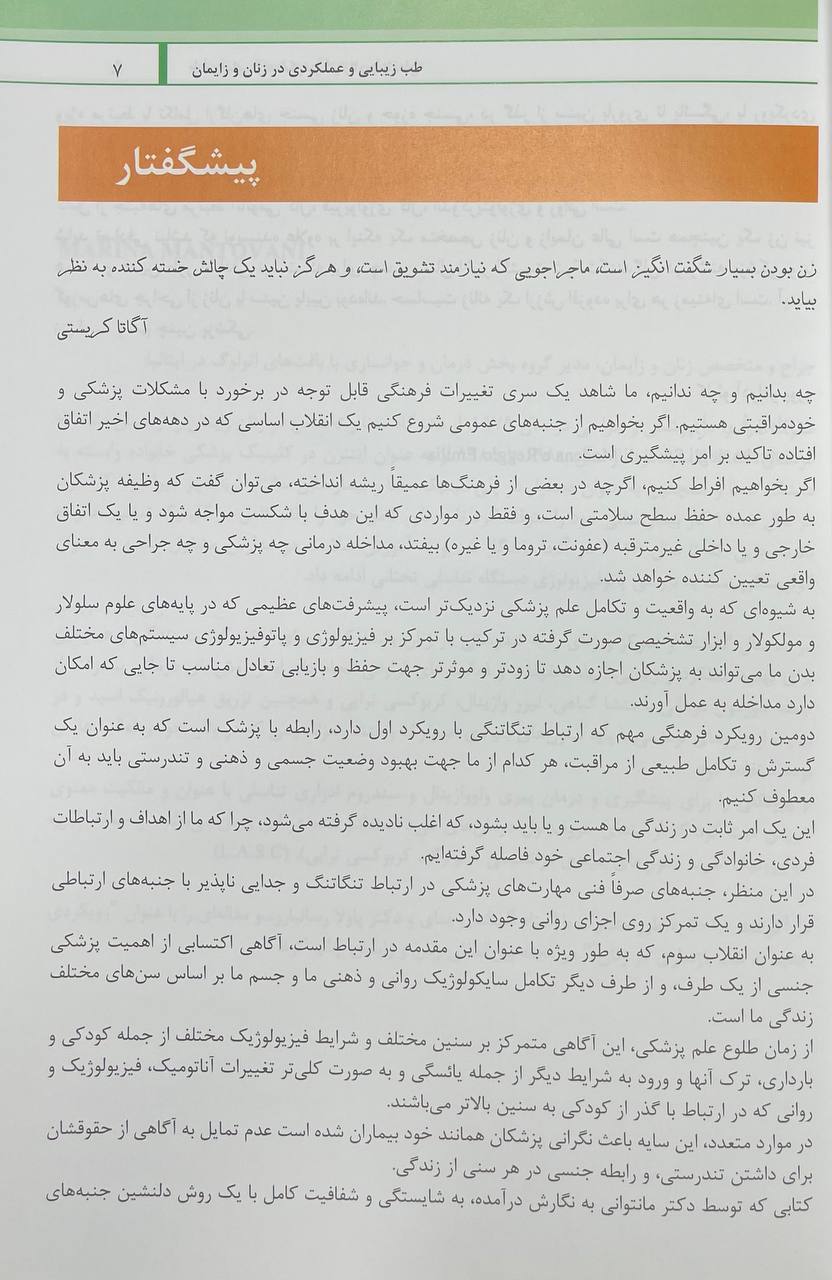 طب زیبایی و عملکردی در زنان و زایمان ۷
پیشگفتار
زن بودن بسیار شگفت انگیز است، ماجراجویی که نیازمند تشویق است، و هرگز نباید یک چالش خسته کننده به نظر
بیاید.
آگاتا کریستی
چه بدانیم و چه ندانیم، ما شاهد یک سری تغییرات فرهنگی قابل توجه در برخورد با مشکلات پزشکی و
خودمراقبتی هستیم. اگر بخواهیم از جنبه‌های عمومی شروع کنیم یک انقلاب اساسی که در دهه‌های اخیر اتفاق
افتاده تاکید بر امر پیشگیری است.
اگر بخواهیم افراط کنیم، اگرچه در بعضی از فرهنگ‌ها عمیقاً ریشه انداخته، می‌توان گفت که وظیفه پزشکان
به طور عمده حفظ سطح سلامتی است، و فقط در مواردی که این هدف با شکست مواجه شود و یا یک اتفاق
خارجی و یا داخلی غیرمترقبه (عفونت، تروما و یا غیره) بیفتد، مداخله درمانی چه پزشکی و چه جراحی به معنای
واقعی تعیین کننده خواهد شد.
به شیوه‌ای که به واقعیت و تکامل علم پزشکی نزدیک‌تر است، پیشرفت‌های عظیمی که در پایه‌های علوم سلولار
و مولکولار و ابزار تشخیصی صورت گرفته در ترکیب با تمرکز بر فیزیولوژی و پاتوفیزیولوژی سیستم‌های مختلف
بدن ما می‌تواند به پزشکان اجازه دهد تا زودتر و موثرتر جهت حفظ و بازیابی تعادل مناسب تا جایی که امکان
دارد مداخله به عمل آورند.
دومین رویکرد فرهنگی مهم که ارتباط تنگاتنگی با رویکرد اول دارد، رابطه با پزشک است که به عنوان یک
گسترش و تکامل طبیعی از مراقبت، هر کدام از ما جهت بهبود وضعیت جسمی و ذهنی و تندرستی باید به آن
معطوف کنیم.
این یک امر ثابت در زندگی ما هست و یا باید بشود، که اغلب نادیده گرفته می‌شود، چرا که ما از اهداف و ارتباطات
فردی، خانوادگی و زندگی اجتماعی خود فاصله گرفته‌ایم.
در این منظر، جنبه‌های صرفاً فنی مهارت‌های پزشکی در ارتباط تنگاتنگ و جدایی ناپذیر با جنبه‌های ارتباطی
قرار دارند و یک تمرکز روی اجزای روانی وجود دارد.
به عنوان انقلاب سوم، که به طور ویژه با عنوان این مقدمه در ارتباط است، آگاهی اکتسابی از اهمیت پزشکی
جنسی از یک طرف، و از طرف دیگر تکامل سایکولوژیک روانی و ذهنی ما و جسم ما بر اساس سن‌های مختلف
زندگی ما است.
از زمان طلوع علم پزشکی، این آگاهی متمرکز بر سنین مختلف و شرایط فیزیولوژیک مختلف از جمله کودکی و
بارداری، ترک آنها و ورود به شرایط دیگر از جمله یائسگی و به صورت کلی‌تر تغییرات آناتومیک، فیزیولوژیک و
روانی که در ارتباط با گذر از کودکی به سنین بالاتر می‌باشند.
در موارد متعدد، این سایه باعث نگرانی پزشکان همانند خود بیماران شده است عدم تمایل به آگاهی از حقوقشان
برای داشتن تندرستی، و رابطه جنسی در هر سنی از زندگی.
کتابی که توسط دکتر مانتوانی به نگارش درآمده، به شایستگی و شفافیت کامل با یک روش دلنشین جنبه‌های